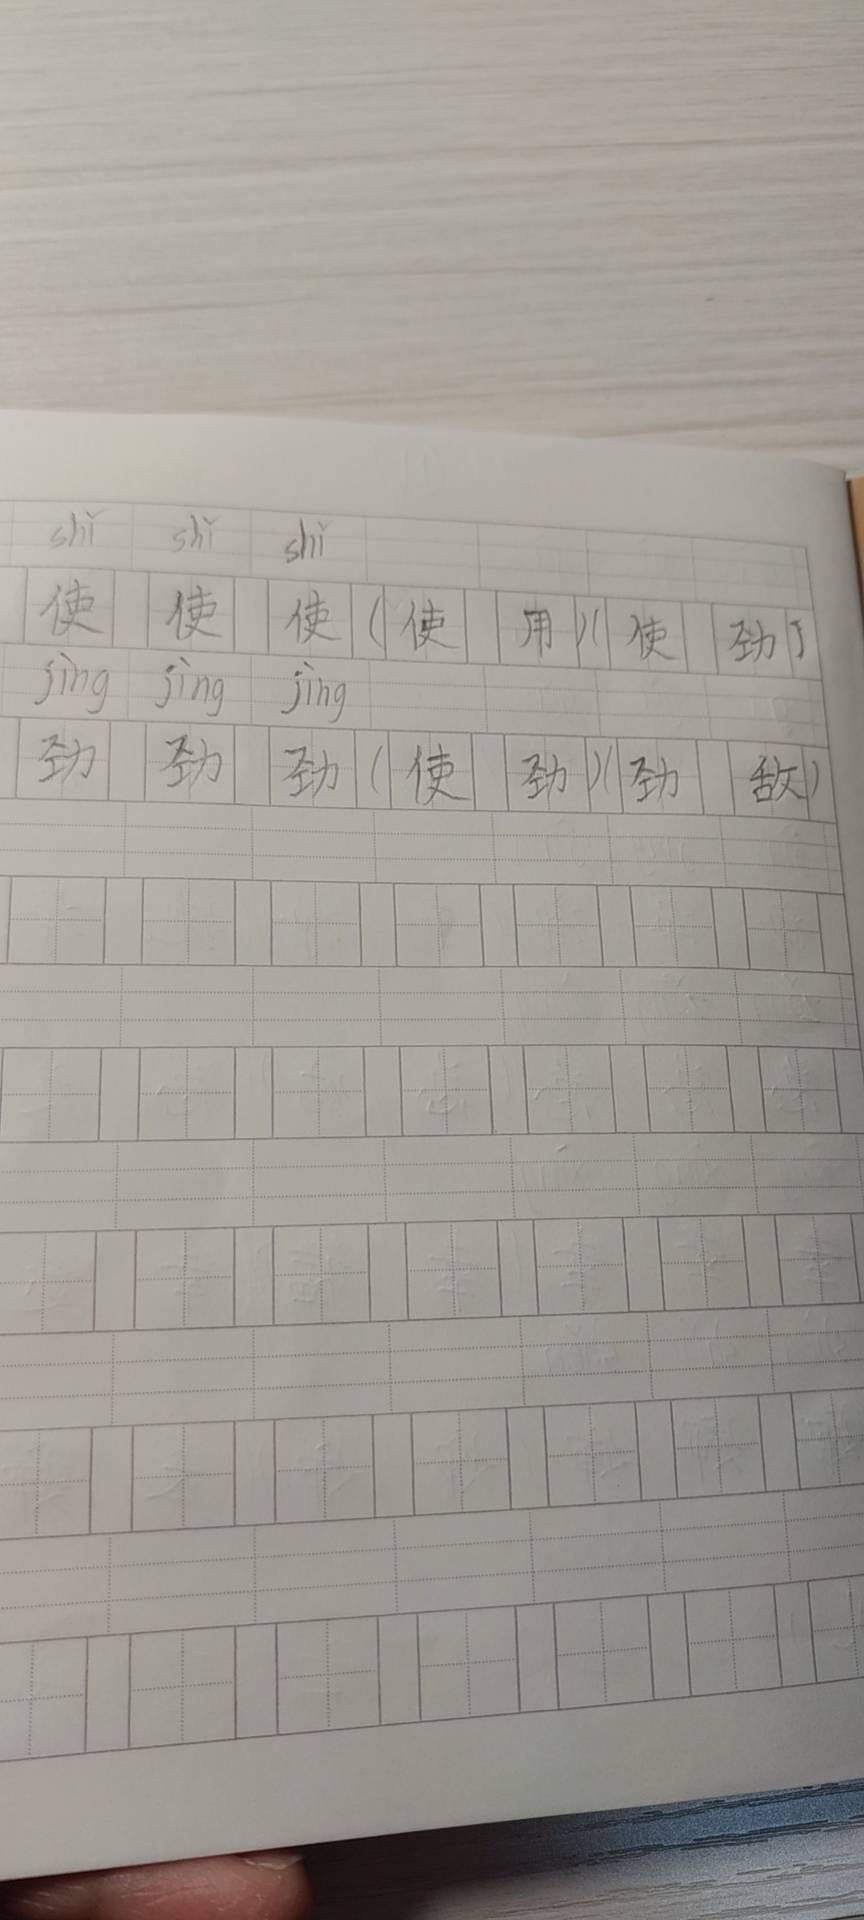 shǐ shǐ shǐ
使 使 使 (使 用)(使 劲)
jìng jìng jìng
劲 劲 劲 (使 劲)(劲 敌)